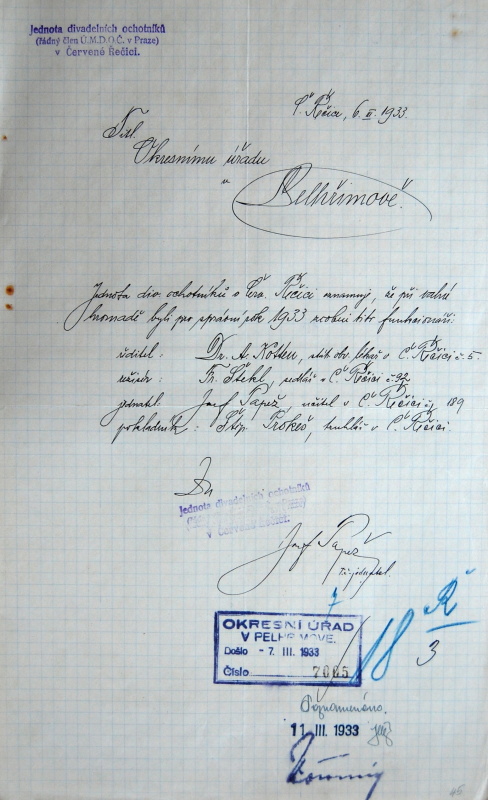 Jednota divadelních ochotníků
(řádný člen Ú.M.D.O.Č. v Praze)
v Červené Řečici.
Č. Řečice, 6. III. 1933.
Titl.
Okresnímu úřadu
v
Pelhřimově.
Jednota div. ochotníků v Červ. Řečici oznamuje, že při valné
hromadě byli pro správní rok 1933 zvoleni tito funkcionáři:
ředitel : Dr. A. Kotten, obv. lékař v Č. Řečici č. 5.
režisér : Fr. Štekl, sedlák v Č. Řečici č. 92
jednatel : Josef Papež, učitel v Č. Řečici čj. 189
pokladník : Štěp. Prokeš, truhlář v Č. Řečici.
Za
Jednota divadelních ochotníků
v Červené Řečici.
Josef Papež
t. č. jednatel.
OKRESNÍ ÚŘAD
V PELHŘIMOVĚ.
Došlo - 7. III. 1933
Číslo 7065
18
Ř
3
Poznamenáno.
11 III. 1933